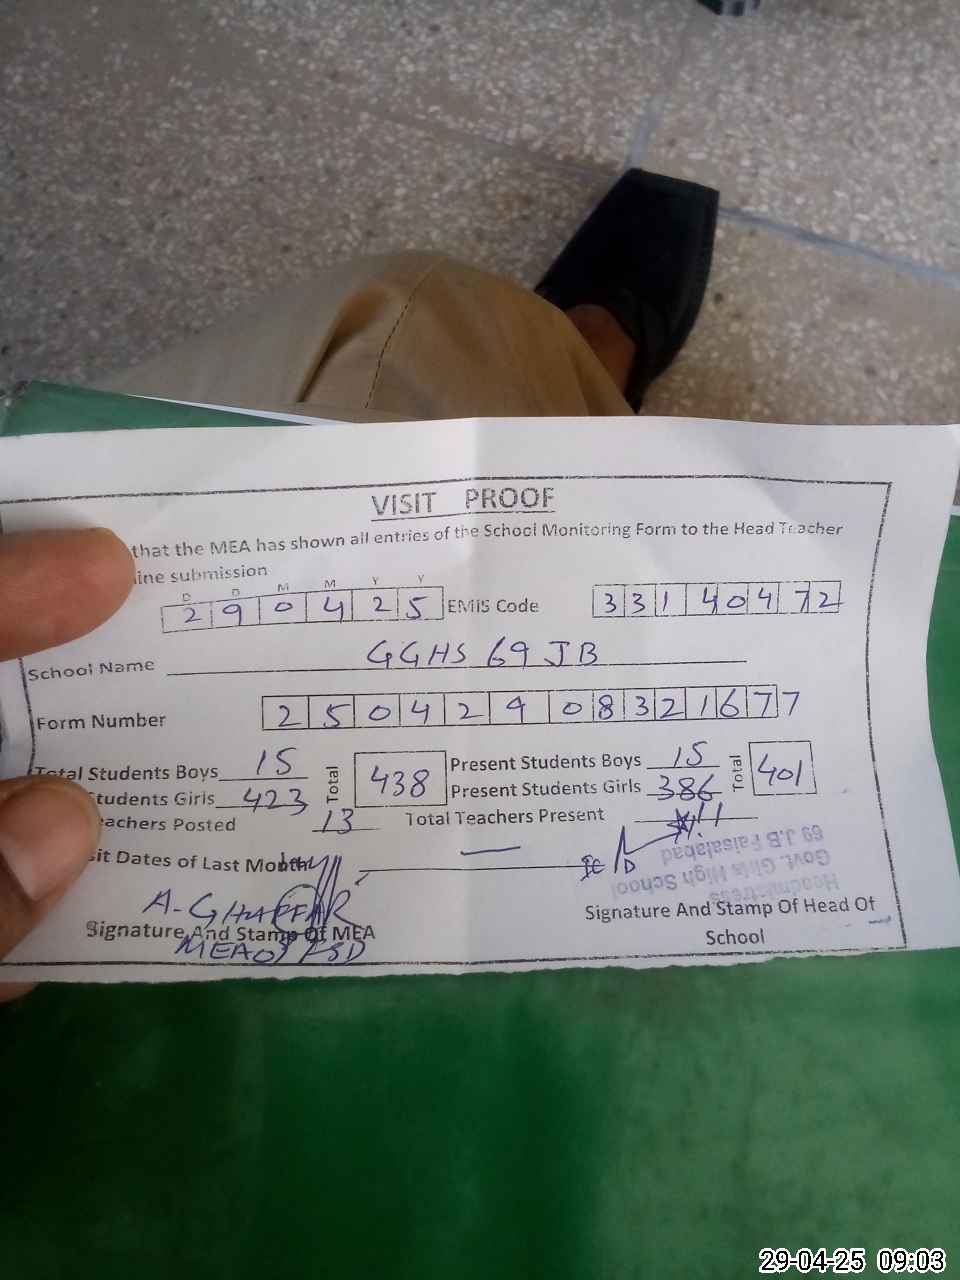 VISIT PROOF
that the MEA has shown all entries of the School Monitoring Form to the Head Teacher
line submission
D D M M Y Y
2 9 0 4 2 5 EMIS Code 3 3 1 4 0 4 7 2
School Name GGHS 69 JB
Form Number 2 5 0 4 2 9 0 8 3 2 1 6 7 7
Total Students Boys 15 Total 438 Present Students Boys 15 Total 401
Students Girls 423 Present Students Girls 386
Teachers Posted 13 Total Teachers Present 11
sit Dates of Last Month —
A-GHAFFAR
Signature And Stamp Of MEA
FSD
Headmistress
Govt. Girls High School
69 J.B Faisalabad
Signature And Stamp Of Head Of
School
29-04-25 09:03